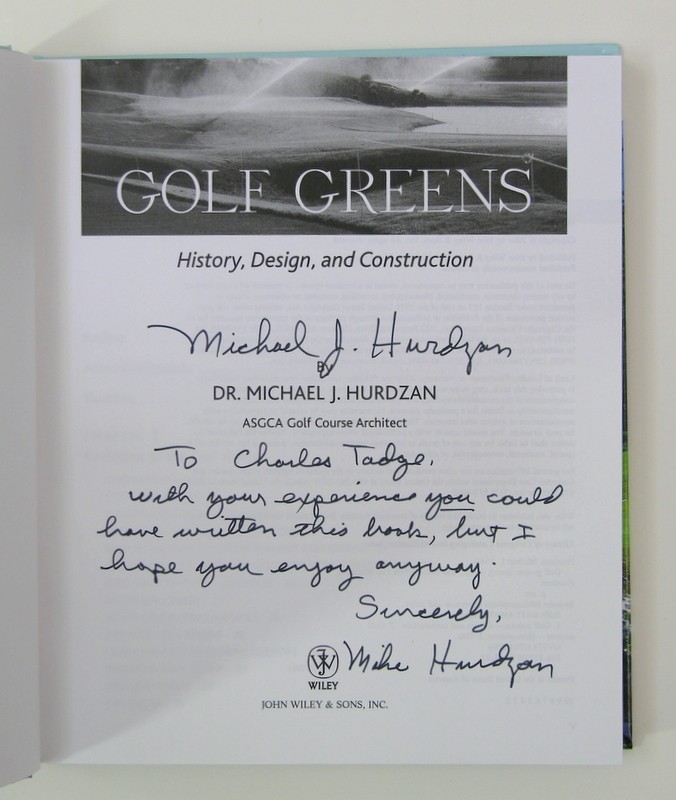 GOLF GREENS
History, Design, and Construction
Michael J. Hurdzan
By
DR. MICHAEL J. HURDZAN
ASGCA Golf Course Architect
To Charles Tadge,
with your experience you could
have written this book, but I
hope you enjoy anyway.
Sincerely,
Mike Hurdzan
WILEY
JOHN WILEY & SONS, INC.